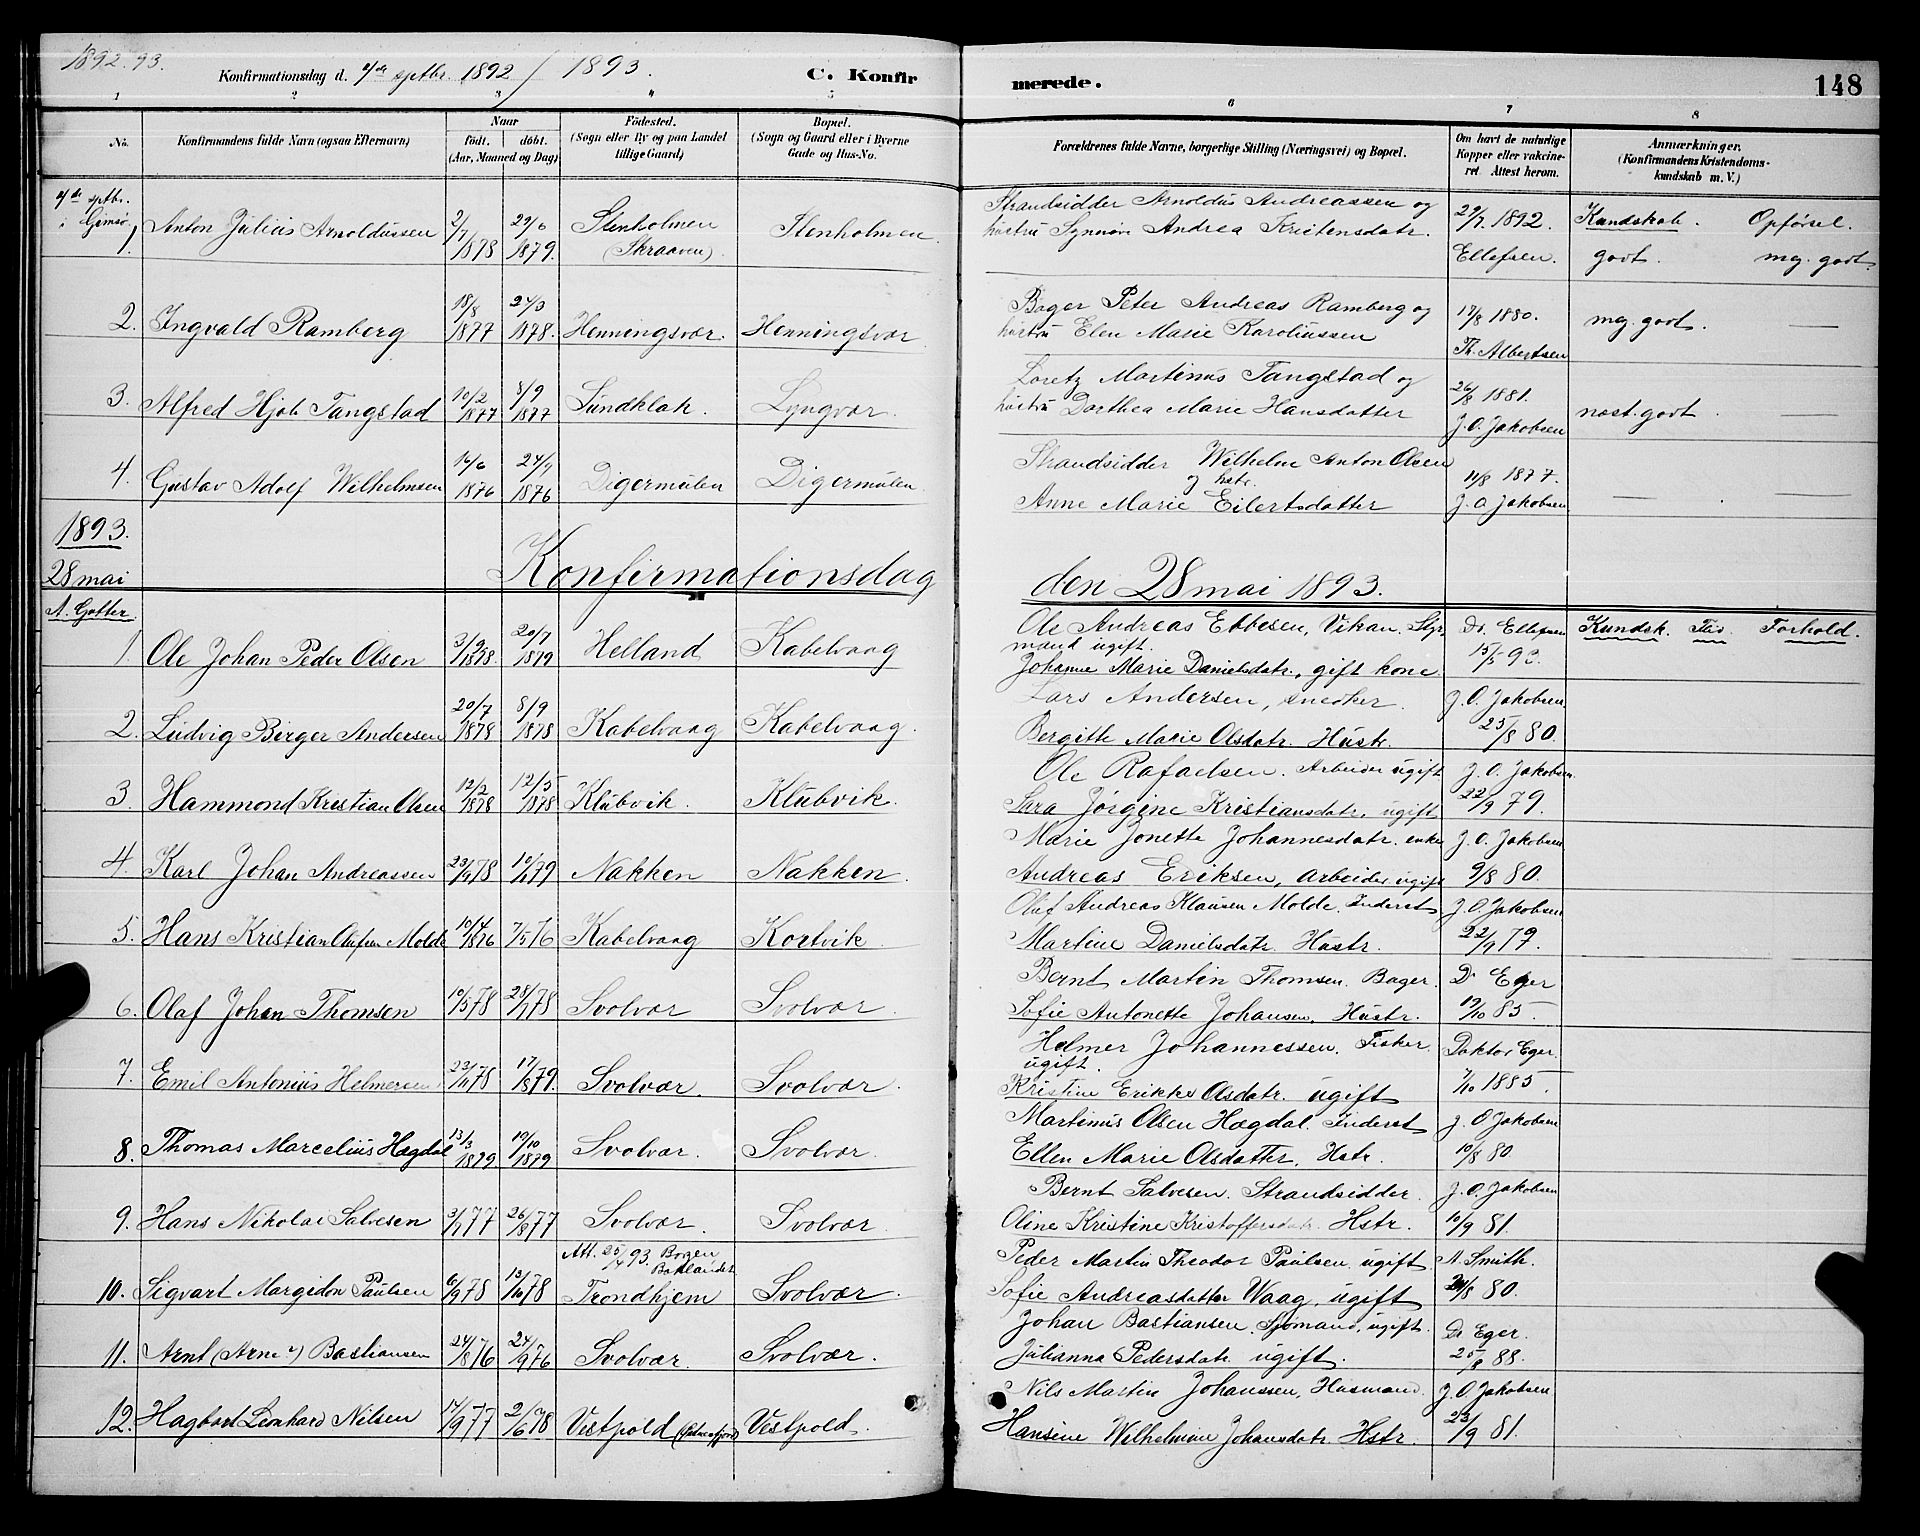 1892-93.
Konfirmationsdag d. 4/de sptbr. 1892 / 1893.
C. Konfirmerede.
148
1 2 3 4 5 6 7 8
No.
Konfirmandens fulde Navn (ogsaa Efternavn)
Naar
født. døbt.
(Aar, Maaned og Dag)
Fødested.
(Sogn eller By og paa Landet
tillige Gaard)
Bopæl.
(Sogn og Gaard eller i Byerne
Gade og Hus-No.
Forældrenes fulde Navne, borgerlige Stilling (Næringsvei) og Bopæl.
Om havt de naturlige
Kopper eller vakcine-
ret. Attest herom.
Anmærkninger.
(Konfirmandens Kristendoms-
kundskab m. V.)
4/de sptbr.
i Gimsø
1. Anton Julius Arnoldussen 2/7 1878 29/6 1879. Stenholmen (Skraaven) Stenholmen. Strandsidder Arnoldus Andreassen og
hustru Synnøv Andrea Kristensdatr. 29/7 1892. Ellefsen. Kundskab. godt. Opførsel. meg. godt.
2. Ingvald Ramberg 18/8 1877 24/3 1878. Henningsvær. Henningsvær Bager Peter Andreas Ramberg og
hustru Elen Marie Karoliussen 17/8 1880. Th. Albertsen meg. godt. —
3. Alfred Hjob Tangstad 10/2 1877 8/9 1877 Sundklak. Lyngvær. Loretz Martinus Tangstad og
hustru Dorthea Marie Hansdatter 26/8 1881. J. O. Jakobsen næst. godt. —
4. Gustav Adolf Wilhelmsen 16/6 1876 24/9 1876 Digermulen Digermulen. Strandsidder Wilhelm Anton Olsen
og hstr.
Anne Marie Eilertsdatter 11/8 1877. J. O. Jakobsen — —
1893.
28 mai
Konfirmationsdag den 28 mai 1893.
A. Gutter
1. Ole Johan Peder Olsen 3/9 1878. 20/7 1879 Helland Kabelvaag Ole Andreas Ebbesen, Vikan. Styr
mand ugift.
Johanne Marie Danielsdatr., gift kone Dr. Ellefsen 15/5 93. Kundsk. Flid. Forhold.
2. Ludvig Birger Andersen 20/7 1878 8/9 1878 Kabelvaag Kabelvaag. Lars Andersen, snedker.
Bergitte Marie Olsdatr. Hustr. J. O. Jakobsen 25/8 80.
3. Hammond Kristian Olsen 12/2 1878 12/5 1878 Klubvik. Klubvik. Ole Rafaelsen. Arbeider ugift
Sara Jørgine Kristiansdatr. ugift J. O. Jakobsen. 22/9 79.
4. Karl Johan Andreassen 23/9 78 10/ 79 Nakken Nakken. Marie Jonette Johannesdatr. enke
Andreas Eriksen, arbeider ugift J. O. Jakobsen 9/8 80.
5. Hans Kristian Olufsen Molde 10/4 1876 7/5 76 Kabelvaag Kortvik. Oluf Andreas Klausen Molde. Inderst
Martine Danielsdatr. Hustr. J. O. Jakobsen 22/9 79.
6. Olaf Johan Thomsen 10/5 78 28/7 78 Svolvær Svolvær. Bernt Martin Thomsen. Bager.
Sofie Antonette Johansen, Hustr. Dr Eger 19/10 85.
7. Emil Antonius Helmersen 23/11 78 17/8 79. Svolvær. Svolvær. Helmer Johannessen. Fisker.
ugift.
Kristine Erikke Olsdatr. ugift Doktor Eger. 7/10 1885.
8. Thomas Marcelius Hægdal 13/3 1879 19/10 1879 Svolvær. Svolvær. Martinus Olsen Hægdal. Inderst
Ellen Marie Olsdatter. Hstr. J. O Jakobsen 10/8 80.
9. Hans Nikolai Salvesen 3/7 77 26/8 77 Svolvær. Svolvær. Bernt Salvesen. Strandsidder.
Oline Kristine Kristoffersdatr. Hstr. J. O. Jakobsen 10/9 81.
Att. 25/4 93. Bogen
10. Sigvart Margidon Paulsen 6/9 78 13/10 78 Trondhjem Svolvær. Peder Martin Theodor Paulsen. ugift
Sofie Andreasdatter Waag, ugift A. Smith. 24/8 80.
11. Arnt (Arne?) Bastiansen 24/8 76 24/9 76 Svolvær. Svolvær. Johan Bastiansen. Sjømand, ugift.
Julianna Pedersdatr. ugift. Dr Eger. 25/8 88.
12. Hagbart Leonhard Nilsen 17/9 77 2/6 78 Vestpold Vestpold. Nils Martin Johanssen, Husmand.
Hansine Wilhelmine Johansdatr. Hstr. J. O. Jakobsen 23/9 81.